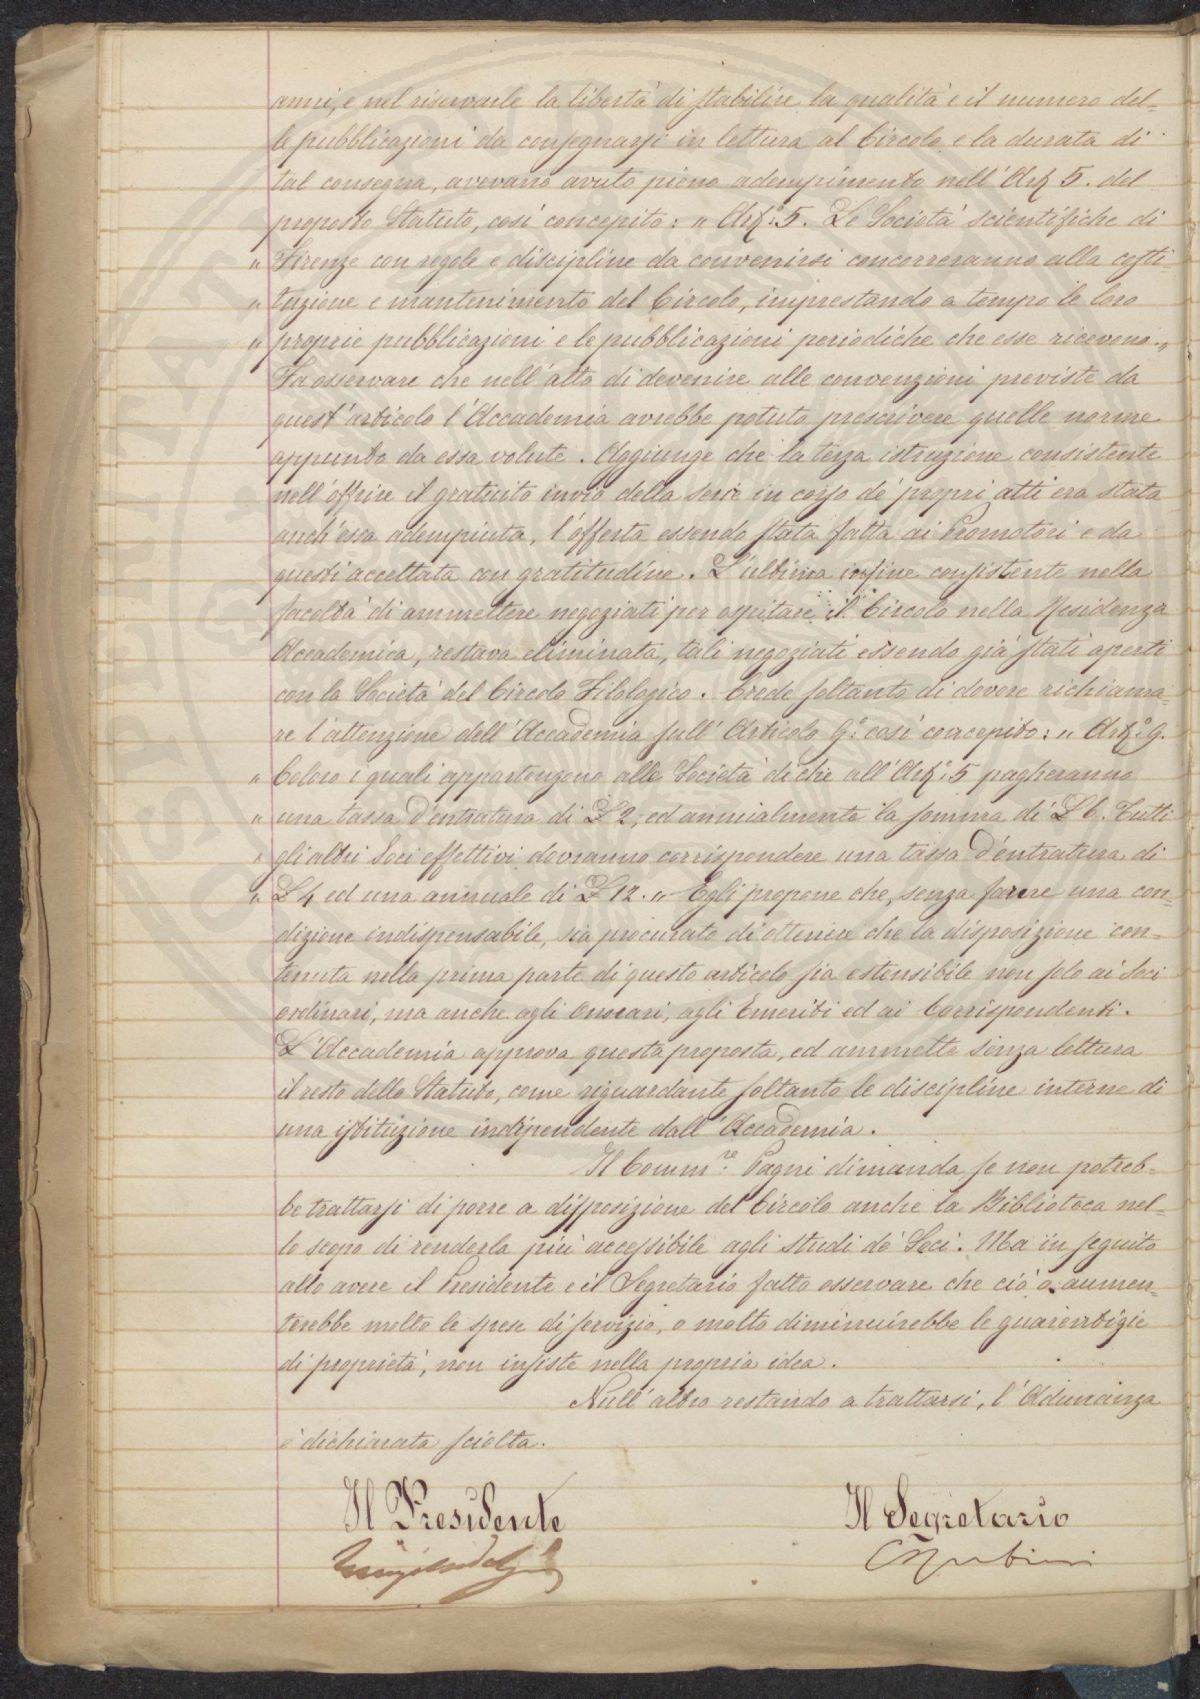 anni, e nel riservarle la libertà di stabilire la qualità e il numero del=
le pubblicazioni da consegnarsi in lettura al Circolo e la durata di
tal consegna, avevano avuto pieno adempimento nell'Art 5. del
proposto Statuto, così concepito: „ Art.° 5. Le Società scientifiche di
„ Firenze con regole e discipline da convenirsi concorreranno alla costi=
„ tuzione e mantenimento del Circolo, imprestando a tempo le loro
„ proprie pubblicazioni e le pubblicazioni periodiche che esse ricevono. „
Fa osservare che nell'atto di devenire alle convenzioni previste da
quest'articolo l'Accademia avrebbe potuto prescrivere quelle norme
appunto da essa volute. Aggiunge che la terza istruzione consistente
nell'offrire il gratuito invio della serie in corso de' propri atti era stata
anch'essa adempiuta, l'offerta essendo stata fatta ai Promotori e da
questi accettata con gratitudine. L'ultima infine consistente nella
facoltà di ammettere negoziati per ospitare il Circolo nella Residenza
Accademica, restava eliminata, tali negoziati essendo già stati aperti
con la Società del Circolo Filologico. Crede soltanto di dovere richiama=
re l'attenzione dell'Accademia sull'Articolo 9.° così concepito: „ Art.° 9.
„ Coloro i quali appartengono alle Società di che all'Art.° 5 pagheranno
„ una tassa d'entratura di L 2, ed annualmente la somma di L 6. Tutti
„ gli altri Soci effettivi dovranno corrispondere una tassa d'entratura di
„ L 4 ed una annuale di L 12. „ Egli propone che, senza farne una con=
dizione indispensabile, sia procurato di ottenere che la disposizione con=
tenuta nella prima parte di questo articolo sia estensibile non solo ai Soci
ordinari, ma anche agli Onorari, agli Emeriti ed ai Corrispondenti.
L'Accademia approva questa proposta, ed ammette senza lettura
il resto dello Statuto, come riguardante soltanto le discipline interne di
una istituzione indipendente dall'Accademia.
Il Comm.re Pagni dimanda se non potreb=
be trattarsi di porre a disposizione del Circolo anche la Biblioteca nel=
lo scopo di renderla più accessibile agli studi de' Soci. Ma in seguito
allo avere il Presidente e il Segretario fatto osservare che ciò o aumen=
terebbe molto le spese di servizio, o molto diminuirebbe le guarentigie
di proprietà, non insiste nella propria idea.
Null'altro restando a trattarsi, l'Adunanza
è dichiarata sciolta.
Il Presidente Il Segretario